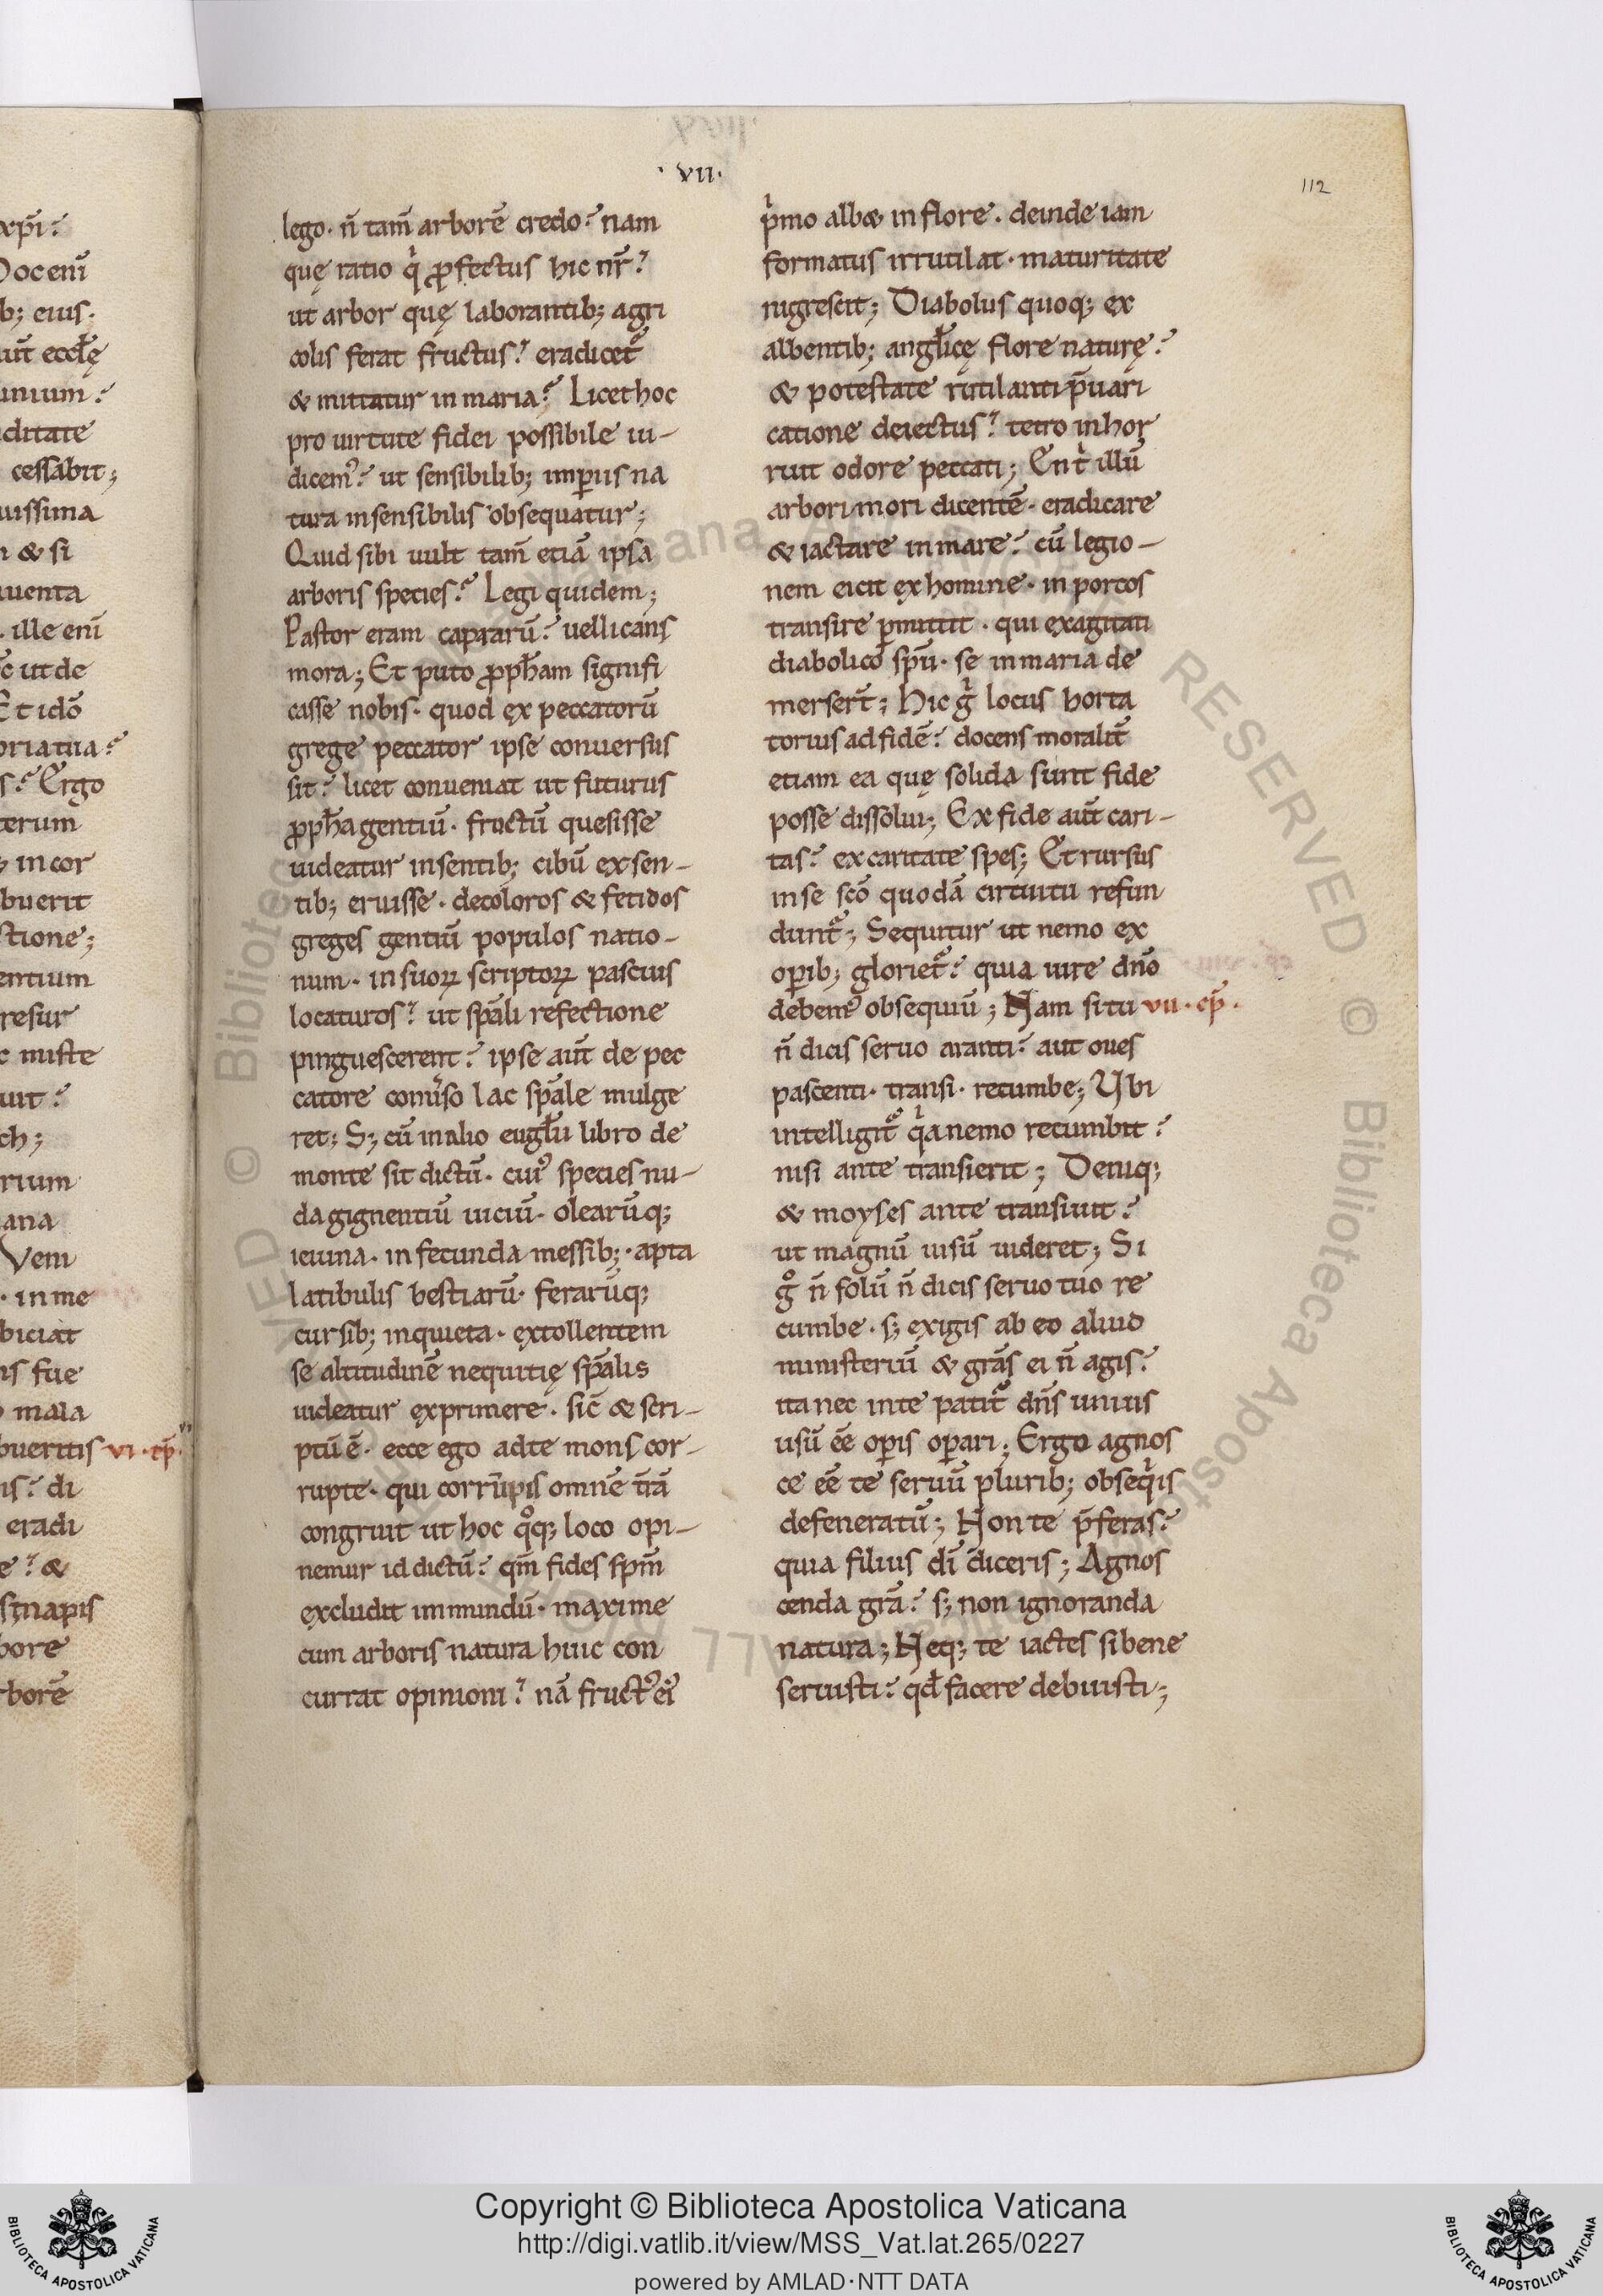 · VII ·
112
xp̄i ?
Docenī
b; eius .
uūt eccłę
unium ?
uditate
cessabit ;
uissima
& si
uenta
. ille enī
c̄ ut de
Et idō
oria tua ?
s ? Ergo
terum
incor
buerit
ctione ;
entium
resur
c miste
uit ?
ch ;
rium
ana
Veni
· inme
biciat
is fue
mala
bueritis VI · cp̄ ·
is ? di
eradi
e ? &
sinapis
bore
rborē
lego · n̄ tam̄ arborē credo ? nam
quę ratio qi ꝓfectus hic nr̄ ?
ut arbor quę laborantib; agri
colis ferat fructus ? eradicet᷑
& mittatur in maria ? Licet hoc
pro uirtute fidei possibile iu-
dicem᾽ ? ut sensibilib; imꝑiis na
tura insensibilis obsequatur ;
Quid sibi uult tam̄ etiā ipsa
arboris species ? Legi quidem ;
Pastor eram caprarū ? uellicans
mora ; Et puto ꝓph̄am signifi
casse nobis · quod ex peccatorū
grege peccator ipse conuersus
sit ? licet conueniat ut futurus
ꝓph̄a gentiū · fructū quesisse
uideatur insentib; cibū exsen-
tib; eruisse · decoloros & fetidos
greges gentiū populos natio-
num · in suoꝝ scriptoꝝ pascuis
locaturos ? ut sp̄ali refectione
pinguescerent ? ipse aūt de pec
catore conuiso lac sp̄ale mulge
ret ; S; cū in alio eugłii libro de
monte sit dictū · cui᾽ species nu-
da gignentiū uiciū · olearūq;
ieiuna · infecunda messib; · apta
latibulis bestiarū · ferarūq;
cursib; inquieta · extollentem
se altitudinē nequitię sp̄alis
uideatur exprimere · sic̄ & scri-
ptū ē · ecce ego adte mons cor-
rupte · qui corrūpis omnē t̄rā
congruit ut hoc qoq; loco opi-
nemur id dictū ? qm̄ fides sp̄m
excludit immundū · maxime
cum arboris natura huic con
currat opinioni ? nā fruct᾽ ei᾽
pimo albæ inflore . deinde iam
formatus irrutilat · maturitate
nigrescit ; Diabolus quoq; ex
albentib; angłicę flore naturę ?
& potestate rutilanti p̄uari
catione deiectus ? tetro inhor
ruit odore peccati ; illū
arbori mori dicentē · eradicare
& iactare inmare ? cū legio-
nem eicit exhomine · in porcos
transire ꝑmittit · qui exagitati
diabolico sp̄u · se inmaria de
merser̄t ; Hic gi locus horta
torius adfidē ? docens moralit̄
etiam ea quę solida sunt fide
posse dissolui ; Ex fide aūt cari-
tas ? ex caritate spes ; Et rursus
in se sc̄o quodā circuitu refun
dunt᷑ ; Sequitur ut nemo ex
oꝑib; gloriet᷑ ? quia iure dn̄o
debem᾽ obsequiū ; Nam si tu VII · cp̄ ·
n̄ dicis seruo aranti ? aut oues
pascenti · transi · recumbe ; Vbi
intelligit᷑ qia nemo recumbit ?
nisi ante transierit ; Deniq;
& moyses ante transiuit ?
ut magnū uisū uideret ; Si
go n̄ solū n̄ dicis seruo tuo re
cumbe · s; exigis ab eo aliud
ministeriū & grās ei n̄ agis ?
ita nec inte patit᷑ dn̄s unius
usū ēe oꝑis oꝑari ; Ergo agnos
ce ēe te seruū plurib; obseqiis
defeneratū ; Non te p̄feras ?
quia filius dī diceris ; Agnos
cenda grā ? s; non ignoranda
natura ; Neq; te iactes si bene
seruisti ? qd̄ facere debuisti ;
Copyright © Biblioteca Apostolica Vaticana
http://digi.vatlib.it/view/MSS_Vat.lat.265/0227
powered by AMLAD·NTT DATA
BIBLIOTECA APOSTOLICA VATICANA
BIBLIOTECA APOSTOLICA VATICANA